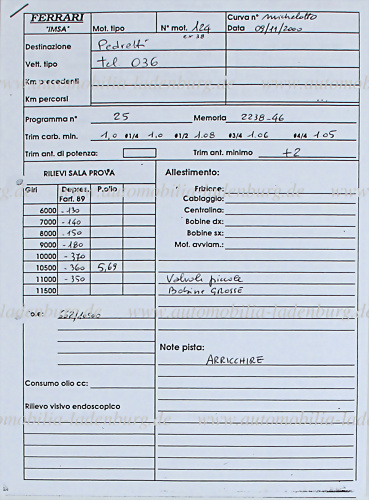 FERRARI Mot. tipo N° mot. 124 Curva n° Michelotto
"IMSA" ex 38 Data 09/11/2000
Destinazione Pedretti
Vett. tipo tel 036
Km precedenti
Km percorsi
Programma n° 25 Memoria 2238-46
Trim carb. min. 1,0 #1/4 1,0 #1/2 1.08 #3/4 1.06 #4/4 1.05
Trim ant. di potenza: Trim ant. minimo +2
RILIEVI SALA PROVA Allestimento:
Giri Depres. P.olio Frizione:
Farf. 89 Cablaggio:
6000 -130 Centralina:
7000 -140 Bobine dx:
8000 -150 Bobine sx:
9000 -180 Mot. avviam.:
10000 -370
10500 -360 5,69
11000 -350 Valvole piccole
11500 Bobine GROSSE
Note pista:
ARRICCHIRE
Consumo olio cc:
Rilievo visivo endoscopico
www.automobilia-ladenburg.de